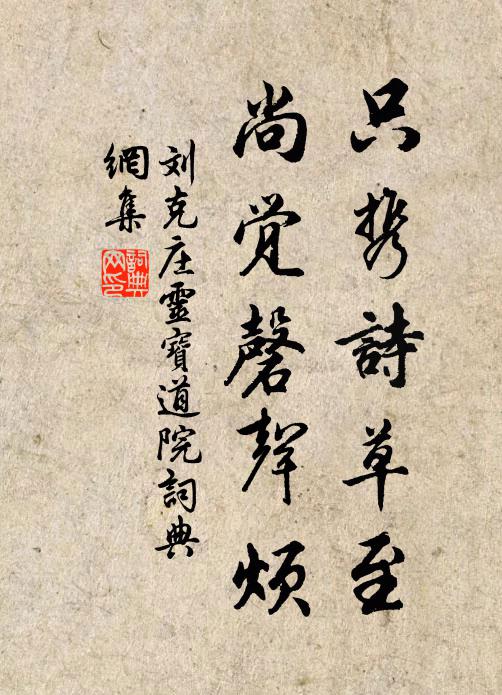 只携詩草至
尚觉磬聲煩
刘克庄靈寶道院詞典
網集
詞典
网印